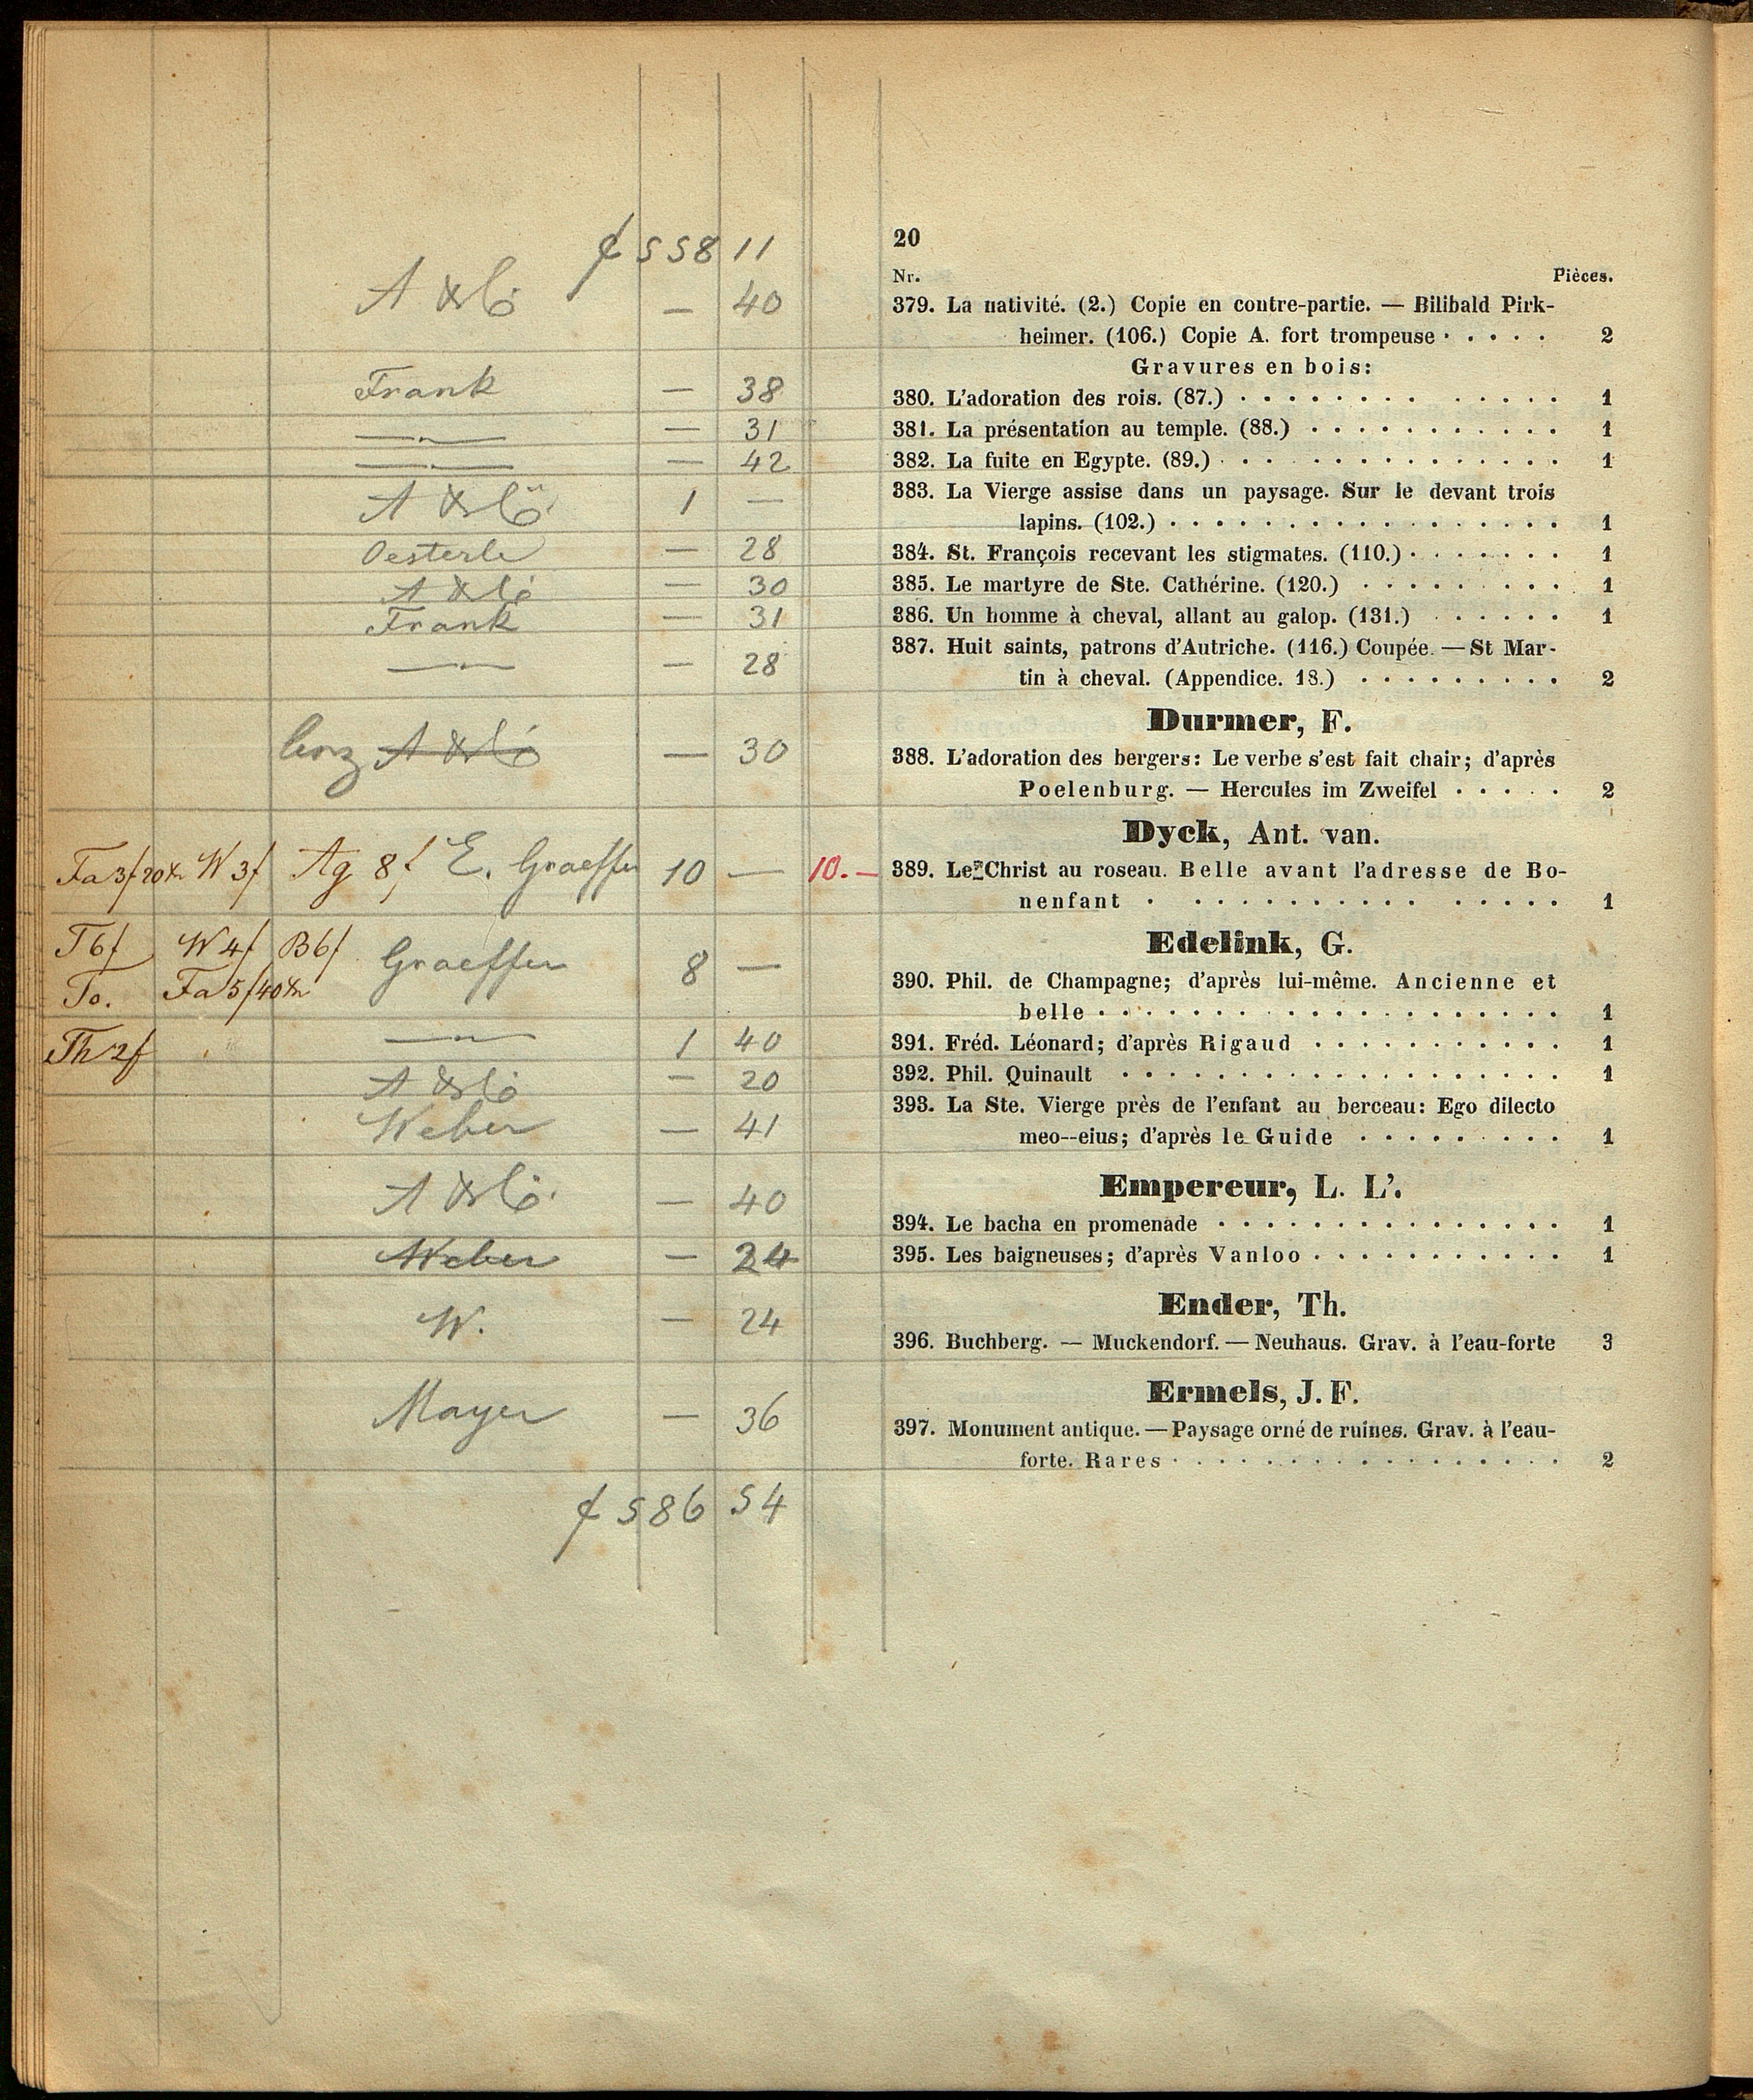 f 558 11
20
Nr. Pièces.
— 40
379. La nativité. (2.) Copie en contre-partie. — Bilibald Pirk-
heimer. (106.) Copie A. fort trompeuse · · · · · 2
Gravures en bois:
Frank — 38
380. L'adoration des rois. (87.) · · · · · · · · · · · · · 1
— 31
381. La présentation au temple. (88.) · · · · · · · · · · · 1
— 42
382. La fuite en Egypte. (89.) · · · · · · · · · · · · · · 1
1 —
383. La Vierge assise dans un paysage. Sur le devant trois
lapins. (102.) · · · · · · · · · · · · · · · · · 1
Oesterle — 28
384. St. François recevant les stigmates. (110.) · · · · · · · 1
— 30
385. Le martyre de Ste. Cathérine. (120.) · · · · · · · · · 1
Frank — 31
386. Un homme à cheval, allant au galop. (131.) · · · · · · 1
— 28
387. Huit saints, patrons d'Autriche. (116.) Coupée. — St Mar-
tin à cheval. (Appendice. 18.) · · · · · · · · · 2
Durmer, F.
— 30
388. L'adoration des bergers: Le verbe s'est fait chair; d'après
Poelenburg. — Hercules im Zweifel · · · · · 2
Dyck, Ant. van.
Fa 3f 20 W 3f Ag 8f E. Graeffer 10 — 10.—
389. Le Christ au roseau. Belle avant l'adresse de Bo-
nenfant · · · · · · · · · · · · · · · · 1
Edelink, G.
T 6f W 4f B 6f Graeffer 8 —
To. Fa 5f 40
390. Phil. de Champagne; d'après lui-même. Ancienne et
belle · · · · · · · · · · · · · · · · · · · · 1
Th 2f 1 40
391. Fréd. Léonard; d'après Rigaud · · · · · · · · · · · 1
— 20
392. Phil. Quinault · · · · · · · · · · · · · · · · · · · 1
Weber — 41
393. La Ste. Vierge près de l'enfant au berceau: Ego dilecto
meo--eius; d'après le Guide · · · · · · · · · 1
Empereur, L. L'.
— 40
394. Le bacha en promenade · · · · · · · · · · · · · · · 1
Weber — 24
395. Les baigneuses; d'après Vanloo · · · · · · · · · · · 1
Ender, Th.
W. — 24
396. Buchberg. — Muckendorf. — Neuhaus. Grav. à l'eau-forte 3
Ermels, J. F.
Mayer — 36
397. Monument antique. — Paysage orné de ruines. Grav. à l'eau-
forte. Rares · · · · · · · · · · · · · · · · · 2
f 586 54